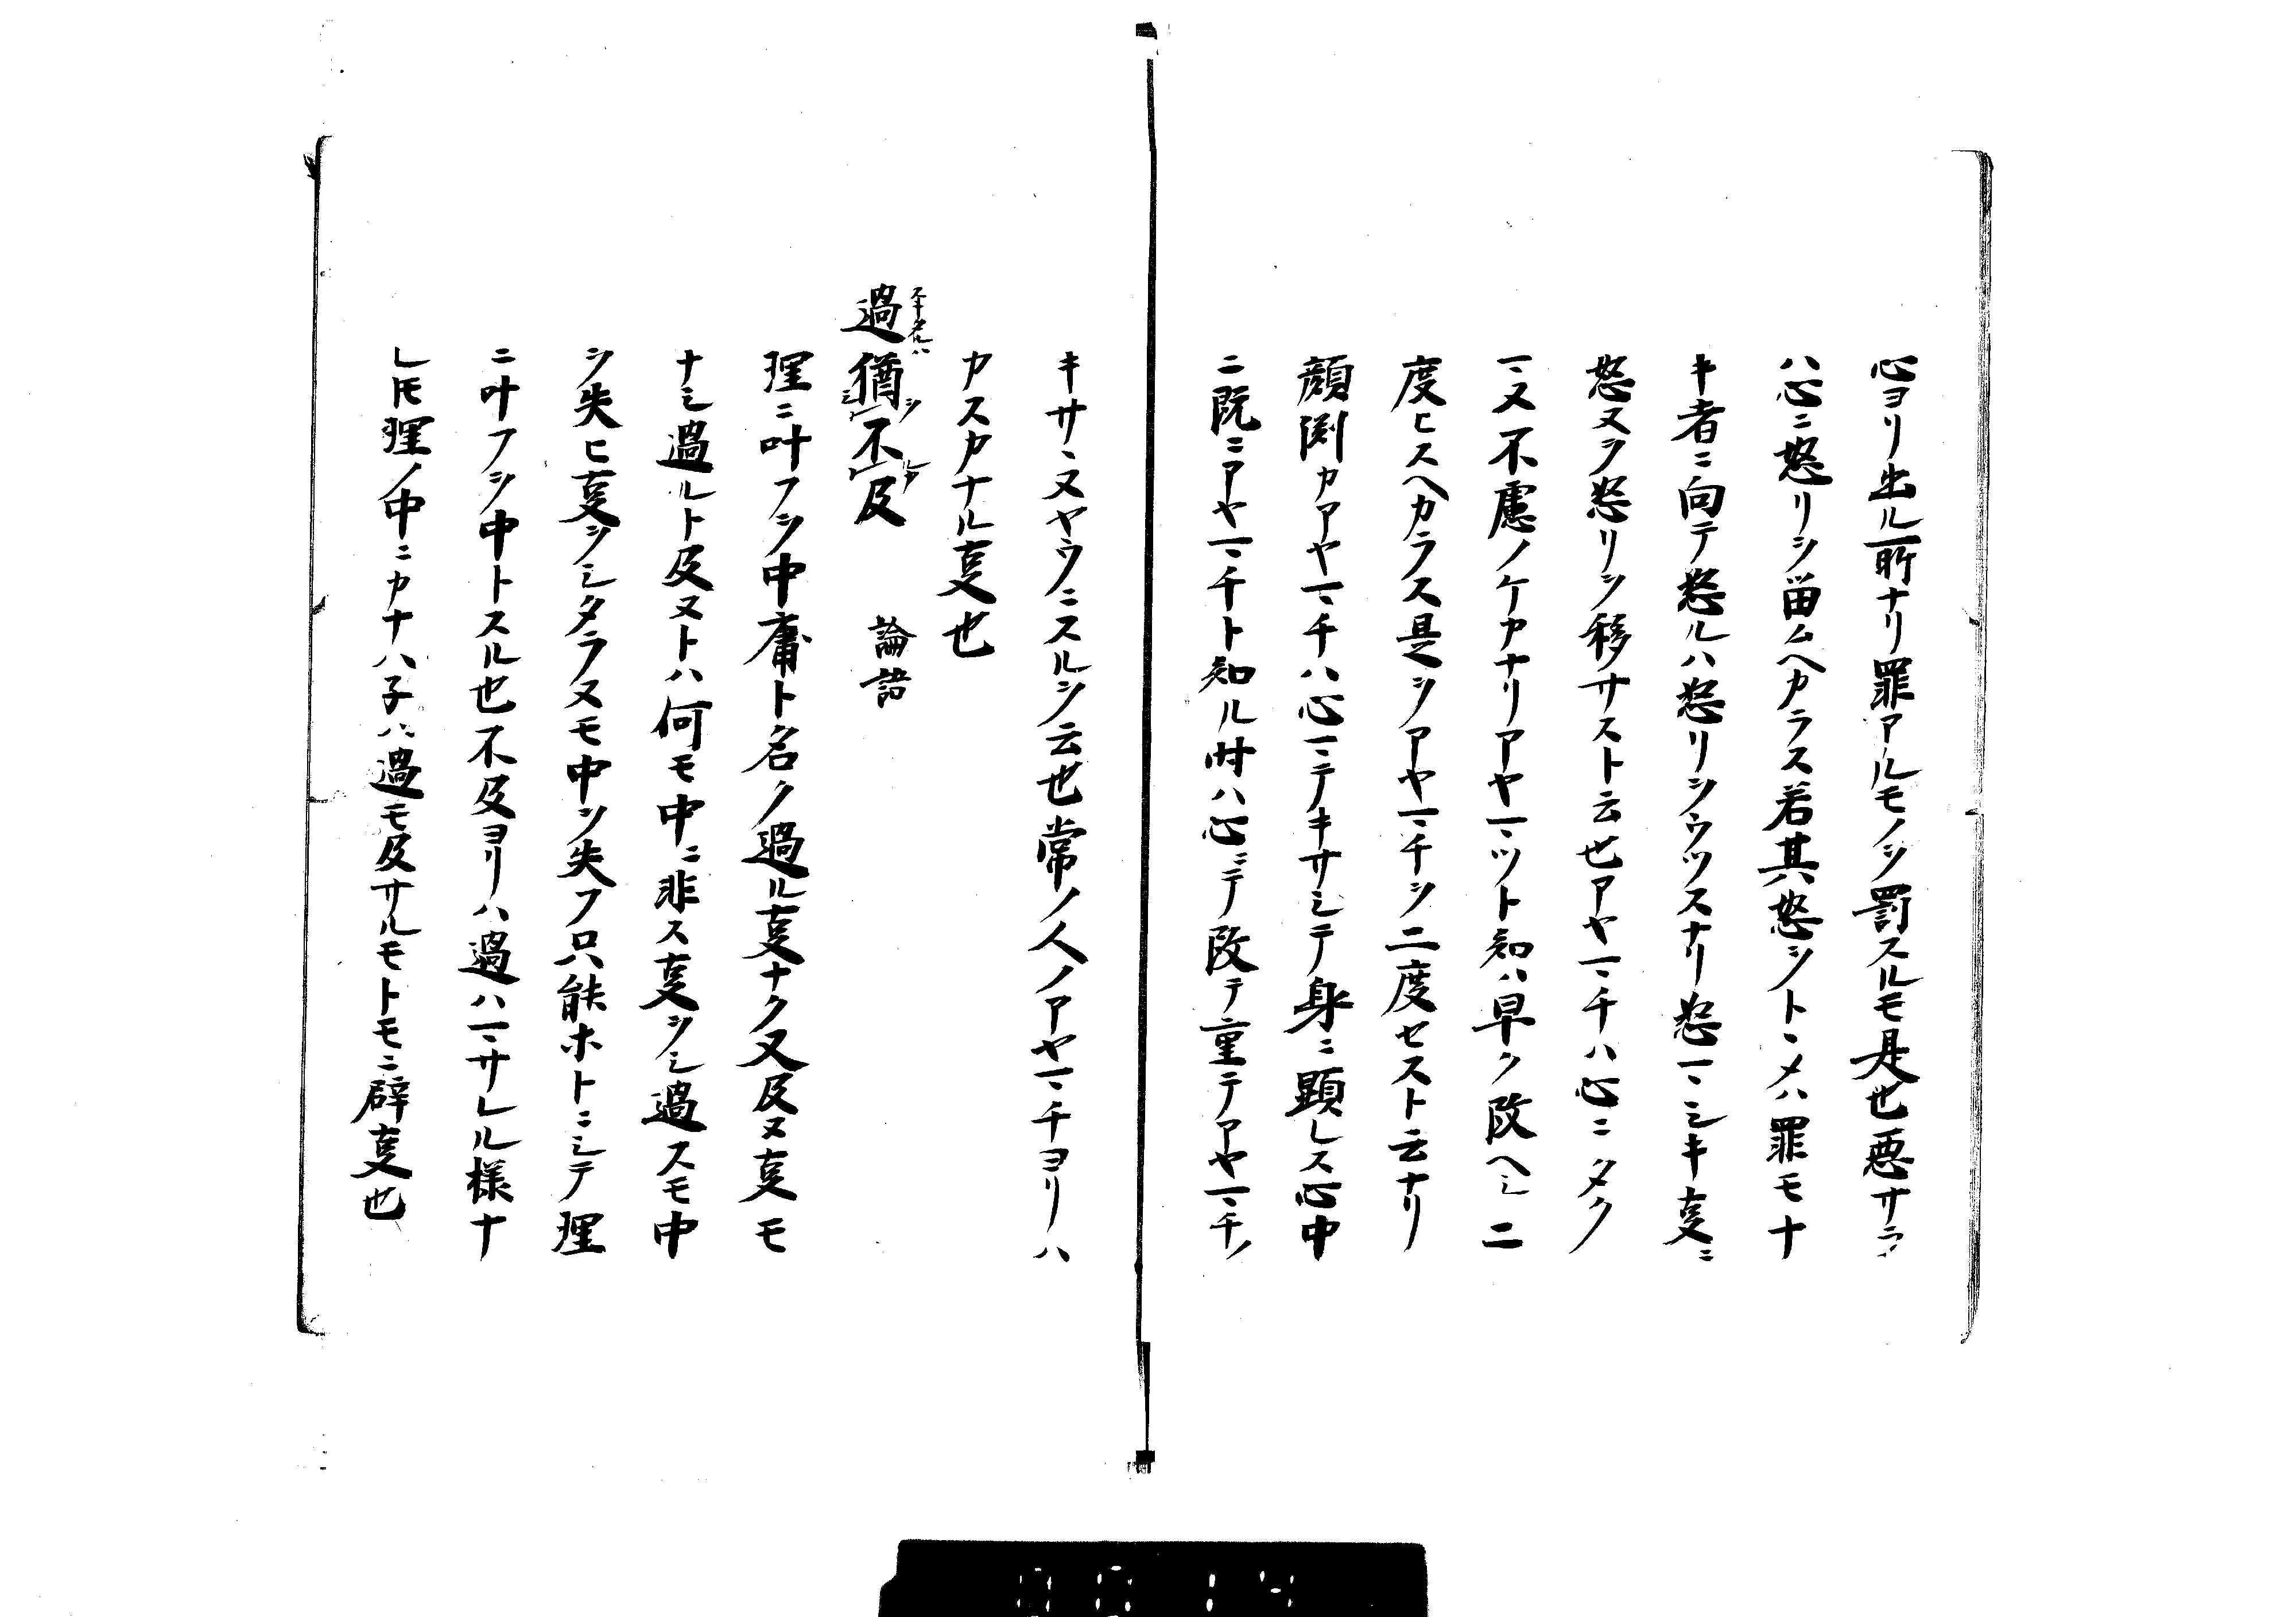 心ヨリ出ル所ナリ罪アルモノヲ罰スルモ是也悪サラ
ハ心ニ怒リヲ畄ムヘカラス若其怒ヲトヽメハ罪モナ
キ者ニ向テ怒ルハ怒リヲウツスナリ怒マシキ事ニ
怒又ヲ怒リヲ移サスト云也アヤマチハ心ニタク
マヌ不慮ノケカナリアヤマツト知ハ早ク改ヘシ二
度ヒスヘカラス是ヲアヤマチヲ二度セスト云ナリ
顔渕カアヤマチハ心マテキサシテ身ニ顕レス心中
ニ既ニアヤマチト知ル時ハ心ニテ改テ重テアヤマチノ
キサヽヌヤウニスルヲ云也常ノ人ノアヤマチヨリハ
カスカナル事也
過猶不及　論語
理ニ叶フヲ中庸ト名ク過ル事ナク又及ヌ事モ
ナシ過ルト及ヌトハ何モ中ニ非ス事ヲシ過スモ中
ヲ失ヒ事ヲシタラヌモ中ヲ失フ只能ホトニシテ理
ニ叶フヲ中トスル也不及ヨリハ過ハマサレル様ナ
レ𪜈理ノ中ニカナハ子ハ過モ及サルモトモニ辟事也